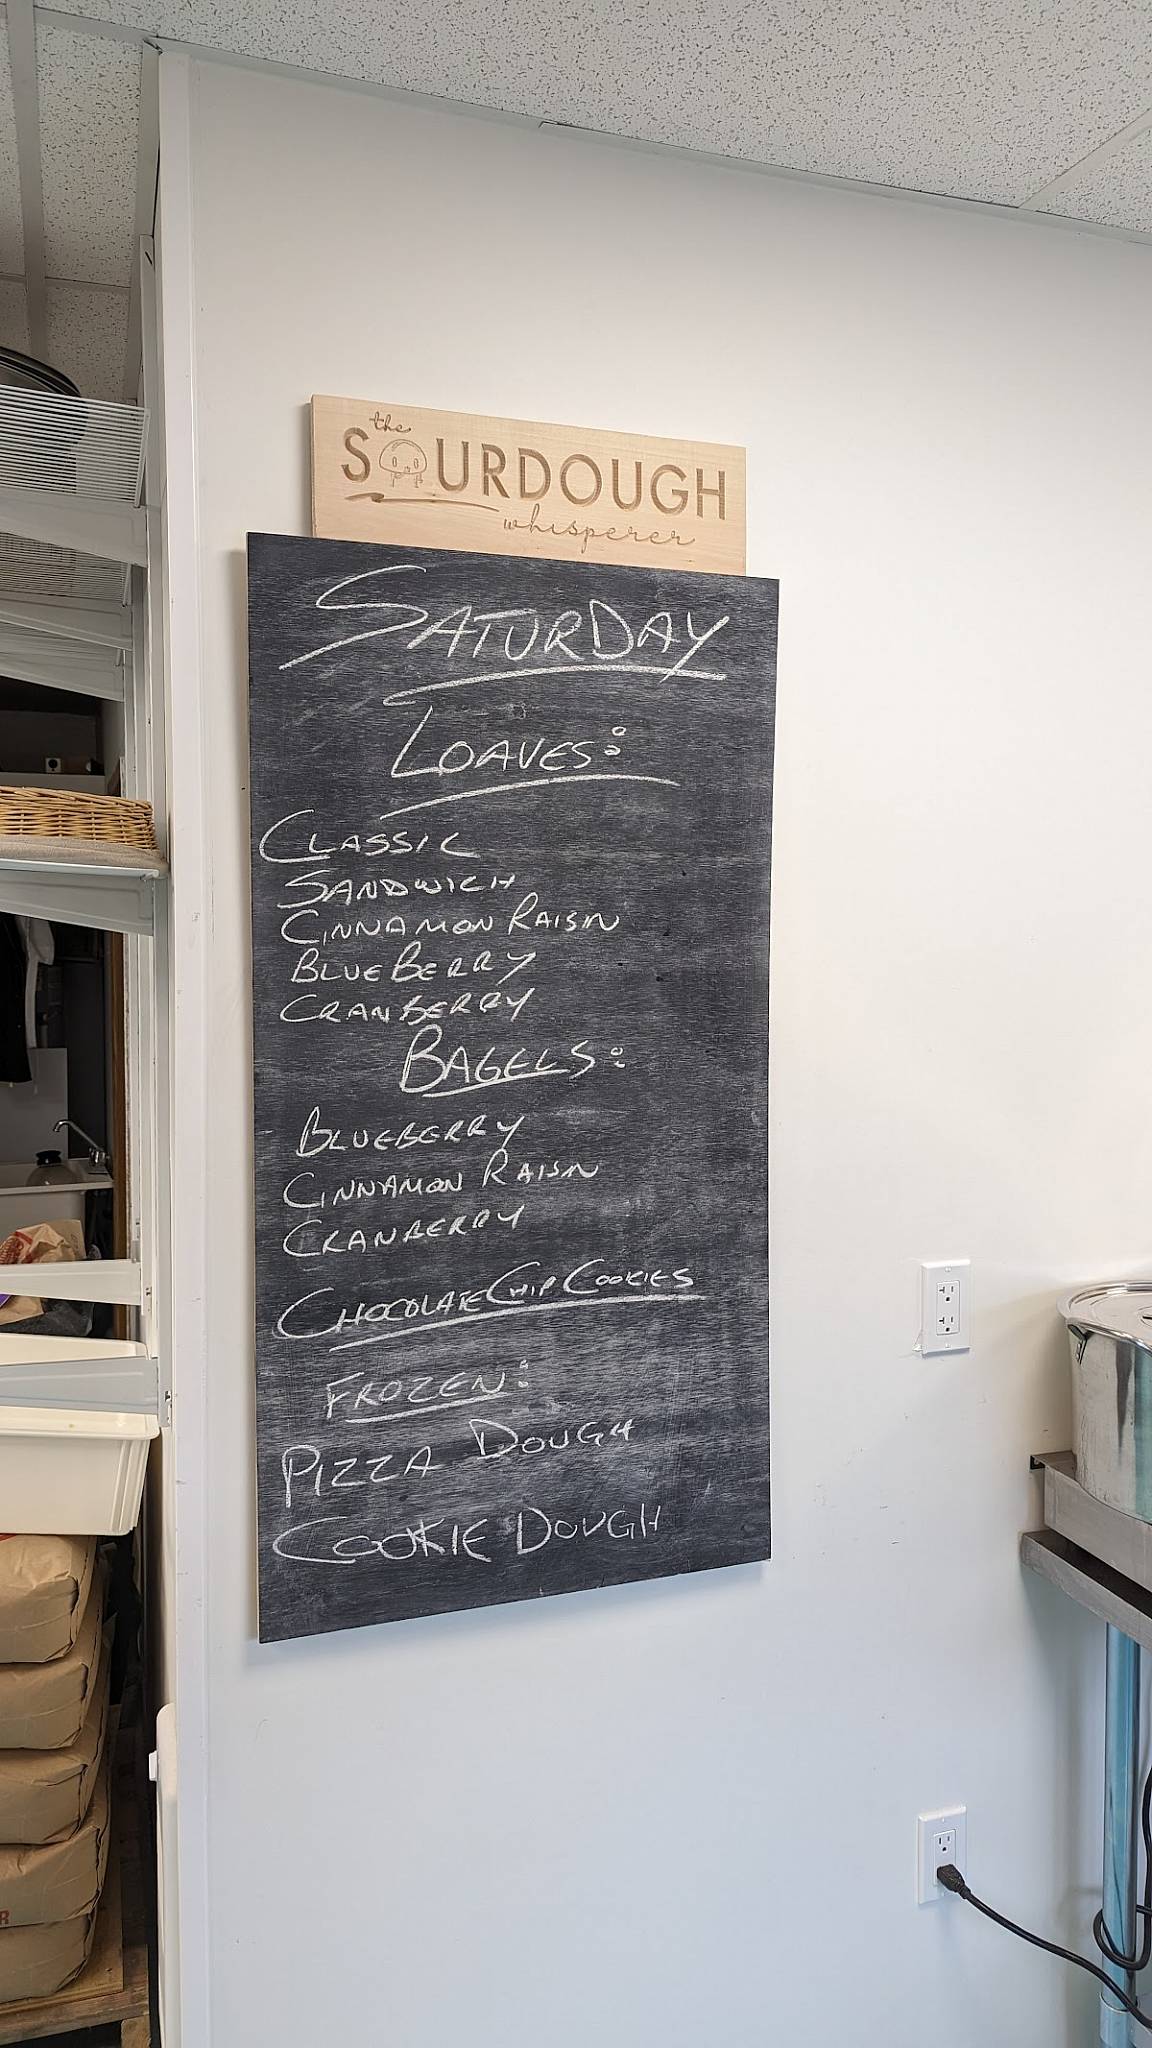 the
SOURDOUGH
whisperer
SATURDAY
LOAVES:
CLASSIC
SANDWICH
CINNAMON RAISIN
BLUEBERRY
CRANBERRY
BAGELS:
BLUEBERRY
CINNAMON RAISIN
CRANBERRY
CHOCOLATE CHIP COOKIES
FROZEN:
PIZZA DOUGH
COOKIE DOUGH
R